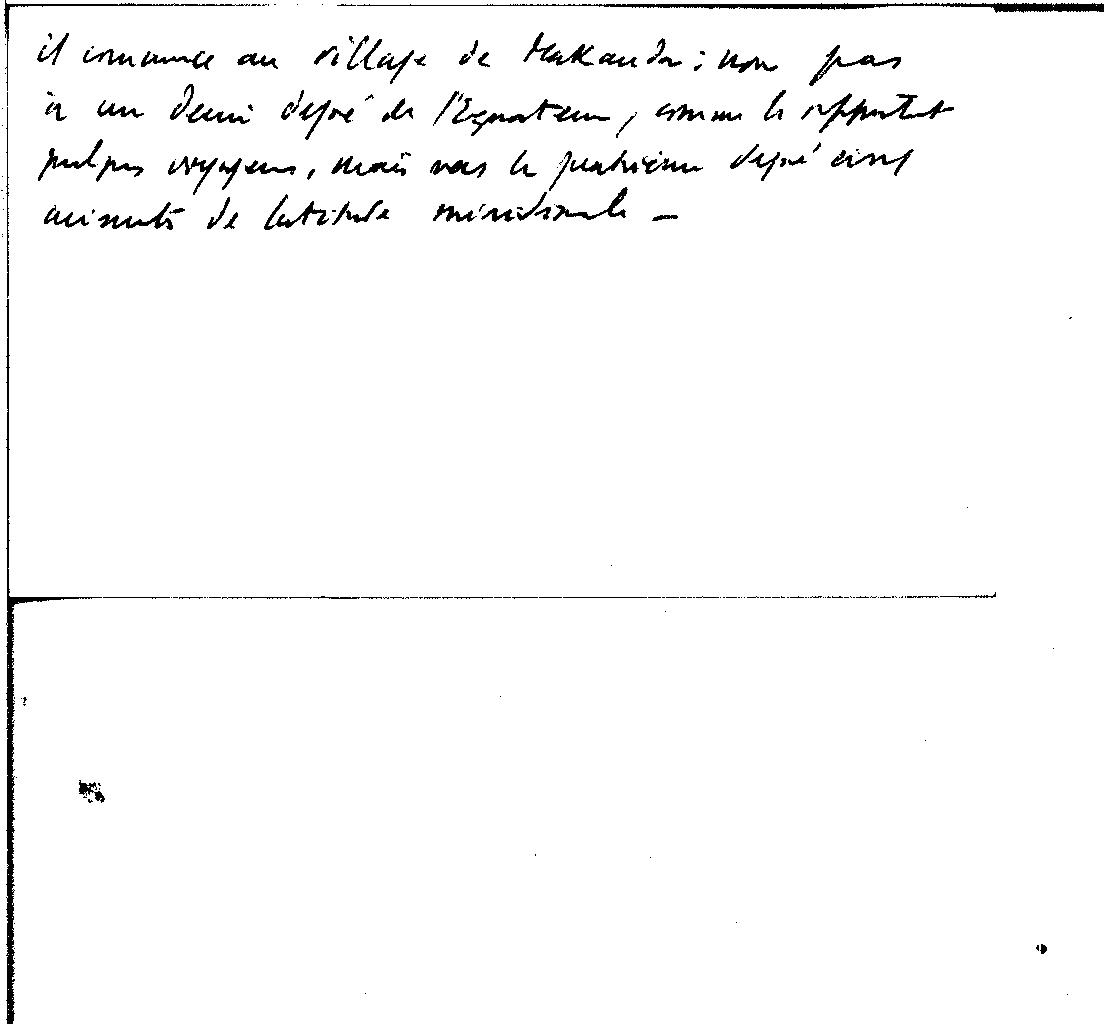 il commence au village de Makanda ; non pas
à un demi degré de l'Equateur, comme le rapportent
quelques voyageurs, mais vers le quatrième degré cinq
minutes de latitude méridionale –